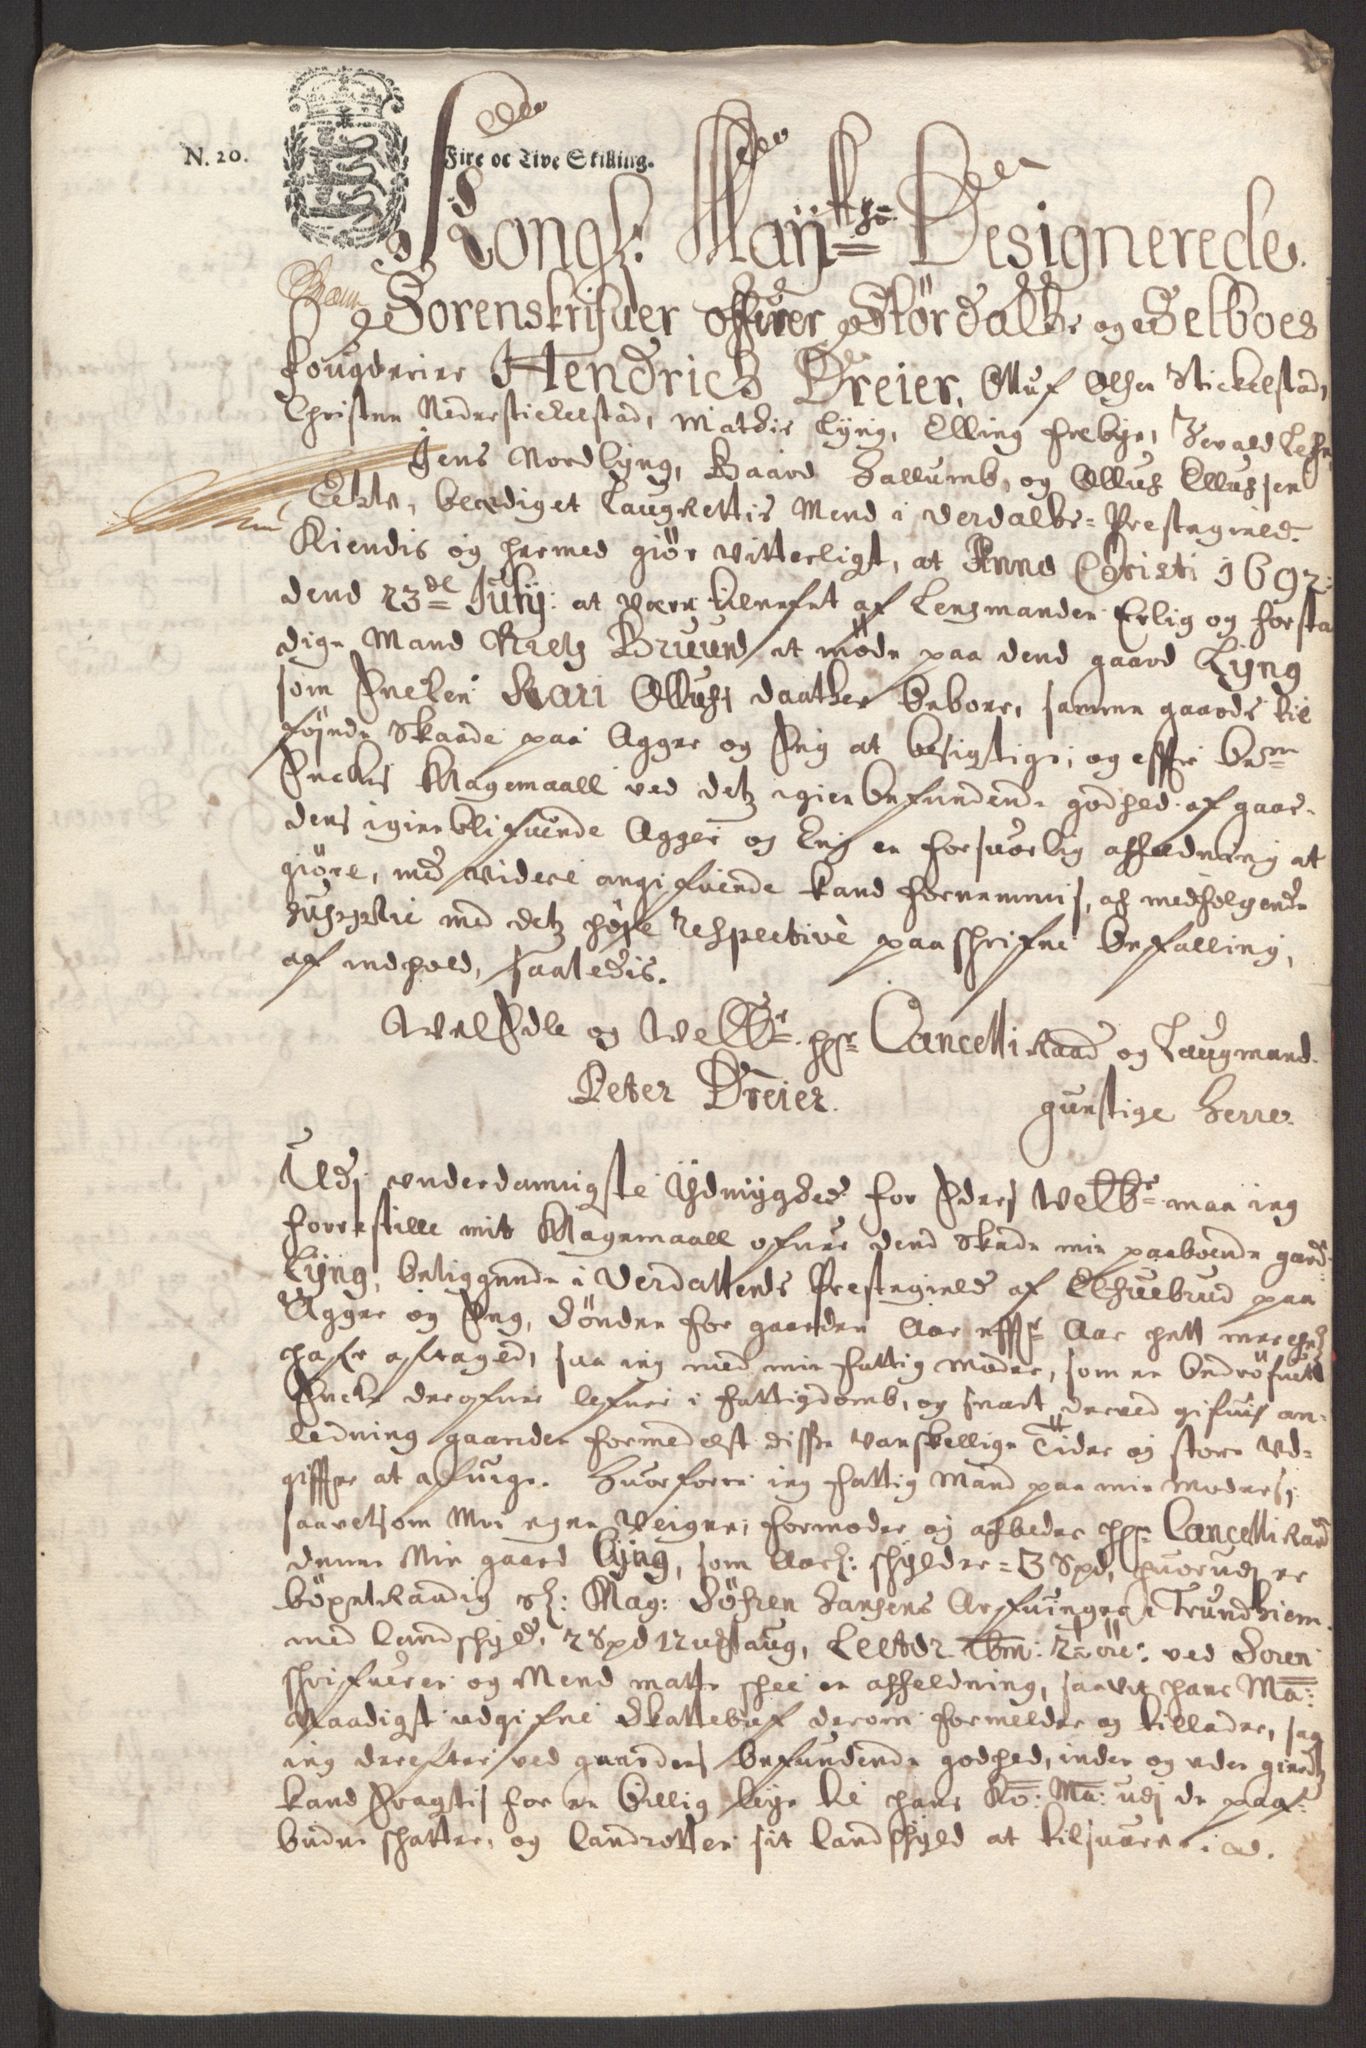 N. 20. Fire oc Tive Skilling.
Kongl: Maÿtts Designerede
Sorenskrifuer offuer Størdalls og Selboes
fougderier Hendrich Dreier, Olluf Olsen Stickelstad,
Christen Nederstickelstad, Mathis Lÿng, Elling Frebÿe, Sevald
Jens Nordlÿng, Baard Hallumb, og Ollufs Ellufsen
Eklo, beædiget Laugrettis Mend i Verdalls Prestegield
Kiendis og hermed giør vitterligt, at Anno Christi 1692
dend 23de Julÿ: at være tilneffnt af Lensmanden Erlig og forsta
dige Mand Niels Bruund at møde paa dend gaard Lÿng
som Enchen Kari Ollufs daatter beboer, samme gaards til
føiede Skaade paa Agger og Eng at besigtige, og effter bem
Enches Klagemaall ved detz igien befundende godhed af gaar-
dens igienblifuende Agger og Eng en forsuarlig affældning at
giøre, med videre angifuende kand fornemmis, af medfølgende
Supplic med detz høÿe respectivè paaschrifne befalling,
af indhold, saaledis.
WelEdle og Welbr. hr. Cancelli Raad og Laugmand
Peter Dreier. gunstige Herre.
Udi underdanigste Ÿdmyghed for Eders Welbr maa ieg
forrestille mit Klagemaall ofuer dend Skade min paaboende gard
Lÿng, beliggende i Verdallens Prestegield af Elfuebrud paa
Agger og Eng, Sønden for gaarden Aar effter Aar hart
hafr aftaged, saa ieg med min fattig Moder, som en bedrøfuett
Enche derofuer lefuer i fattigdomb, og snart derved gifuis an-
ledning gaarden formedelst disse vanskellige Tider og store ud-
giffter at afuige. Huorforre ieg fattig Mand paa min Moders
saavelsom Min egne Veigne, formoder og afbeder hr. Cancelli Raad
denne Min gaard Lÿng, som Aarl: schylder 3 Spd, huorudi er
böxelRaadig Sl: Mag: Søfren Hansens Arfuinger i Trundhiem
med landschyld, 2 Spd ved Soren
schrifueren og Mend maatte schee en affeldning, saavit hans Ma:
Naadigst udgifne Skattebref derom formelder og tillader, saa
ieg derefter ved gaardens befundende godhed, inden og uden gierdz
kand for en billig leÿe til hans Ko: Ma: udj de paa-
budne schatter, og landrotten sit landschyld at tilsuare